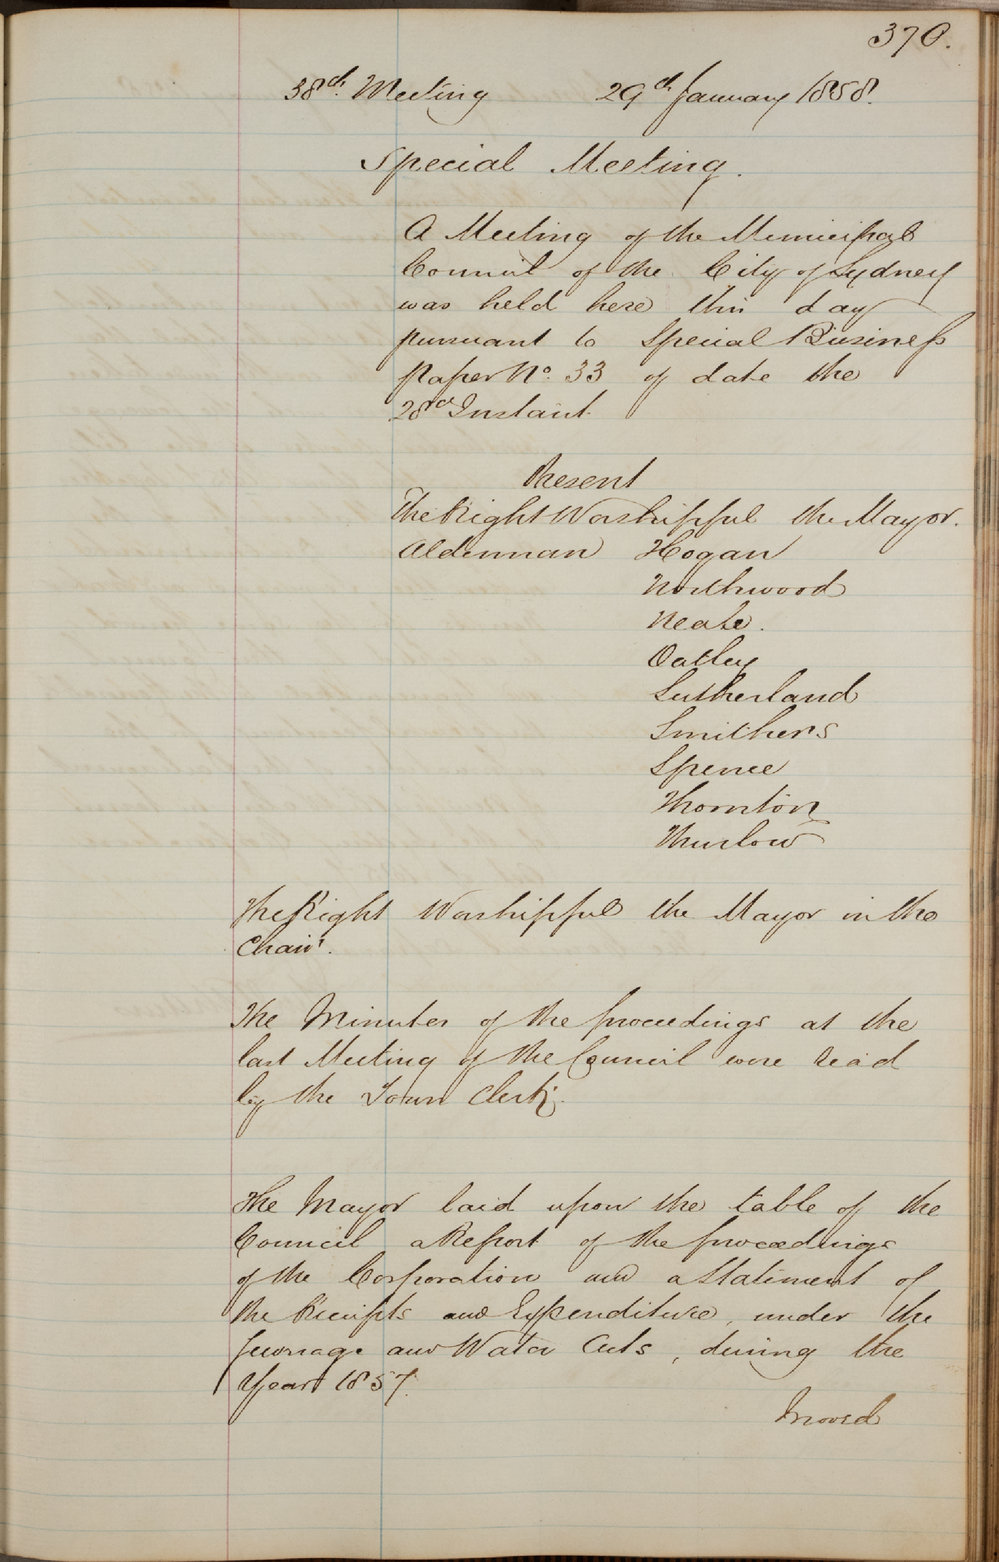 370.
38th Meeting 29th January 1858.
Special Meeting.
A Meeting of the Municipal
Council of the City of Sydney
was held here this day
pursuant to Special Business
Paper No. 33 of date the
28th Instant.
Present
The Right Worshipful the Mayor.
Alderman Hogan
Northwood
Neale.
Oatley
Sutherland
Smithers
Spence
Thornton
Thurlow
The Right Worshipful the Mayor in the
Chair.
The Minutes of the proceedings at the
last Meeting of the Council were read
by the Town Clerk.
The Mayor laid upon the table of the
Council a Report of the proceedings
of the Corporation and a Statement of
the Receipts and Expenditure, under the
Sewerage and Water Acts, during the
Year 1857.
Moved